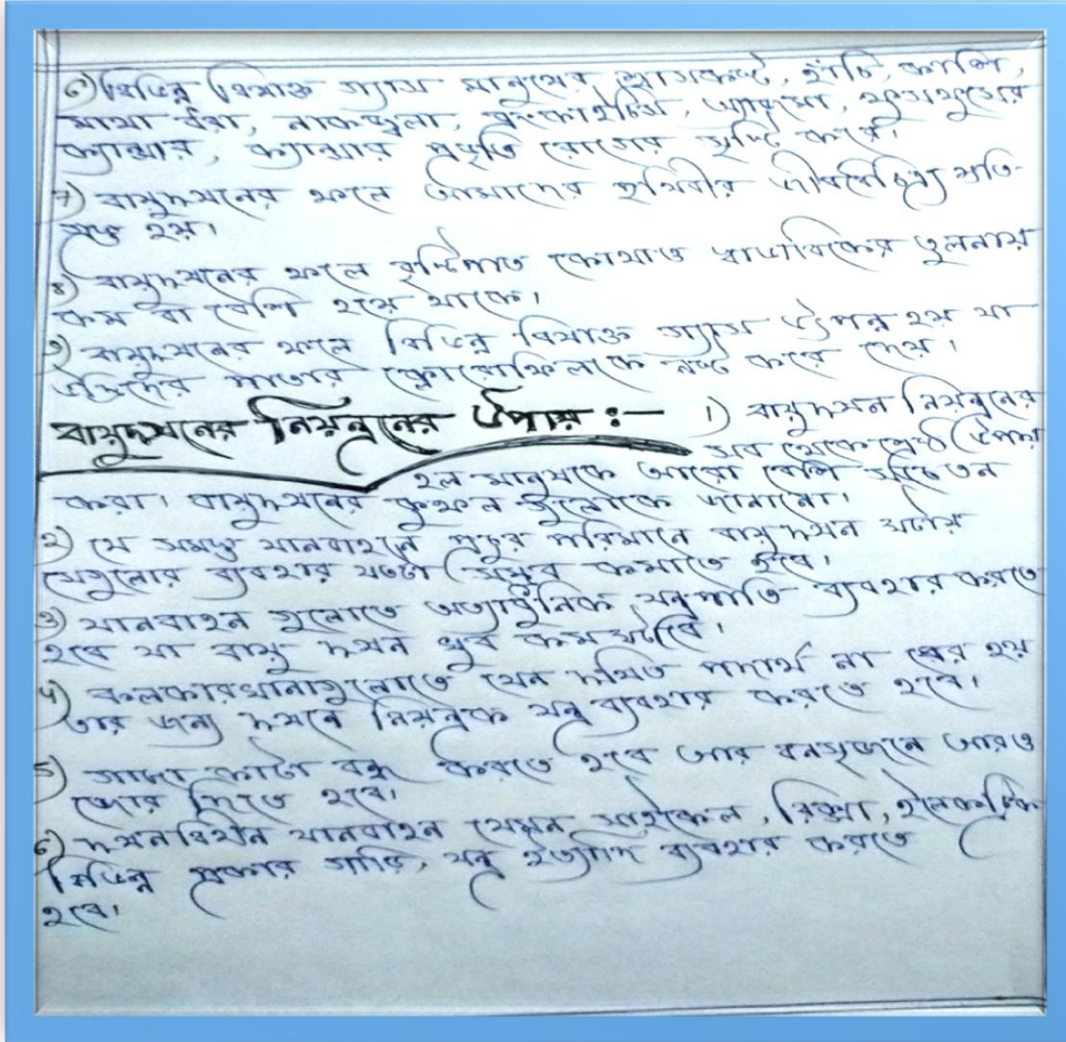 ৬) বিভিন্ন বিষাক্ত গ্যাস মানুষের শ্বাসকষ্ট, হাঁচি, কাশি,
মাথা ধরা, নাকজ্বলা, ব্রংকাইটিস, ফুসফুসের
ক্যান্সার, ক্যান্সার প্রভৃতি রোগের সৃষ্টি করে।
7) বায়ুদূষনের ফলে আমাদের পৃথিবীর জীববৈচিত্র্য ক্ষতি-
গ্রস্ত হয়।
8) বায়ুদূষনের ফলে বৃষ্টিপাত কোথাও স্বাভাবিকের তুলনায়
কম বা বেশি হয়ে থাকে।
৯) বায়ুদূষনের ফলে বিভিন্ন বিষাক্ত গ্যাস উৎপন্ন হয় যা
উদ্ভিদের পাতার ক্লোরোফিলকে নষ্ট করে দেয়।
বায়ুদূষনের নিয়ন্ত্রনের উপায় :—
1) বায়ুদূষন নিয়ন্ত্রনের
সব থেকে শ্রেষ্ঠ উপায়
হল মানুষকে আরো বেশি সচেতন
করা। বায়ুদূষনের কুফল গুলোকে জানানো।
2) যে সমস্ত যানবাহনে প্রচুর পরিমানে বায়ু দূষন ঘটায়
সেগুলোর ব্যবহার যতটা সম্ভব কমাতে হবে।
3) যানবাহন গুলোতে অত্যাধুনিক যন্ত্রপাতি ব্যবহার করতে
হবে যা বায়ু দূষন খুব কম ঘটাবে।
4) কলকারখানাগুলোতে যেন দূষিত পদার্থ না বের হয়
তার জন্য দূষনে নিয়ন্ত্রক যন্ত্র ব্যবহার করতে হবে।
5) গাছ কাটা বন্ধ করতে হবে আর বনসৃজনে আরও
জোর দিতে হবে।
6) দূষনবিহীন যানবাহন যেমন সাইকেল, রিক্সা, ইলেকট্রিক
বিভিন্ন প্রকার গাড়ি, যন্ত্র ইত্যাদি ব্যবহার করতে
হবে।